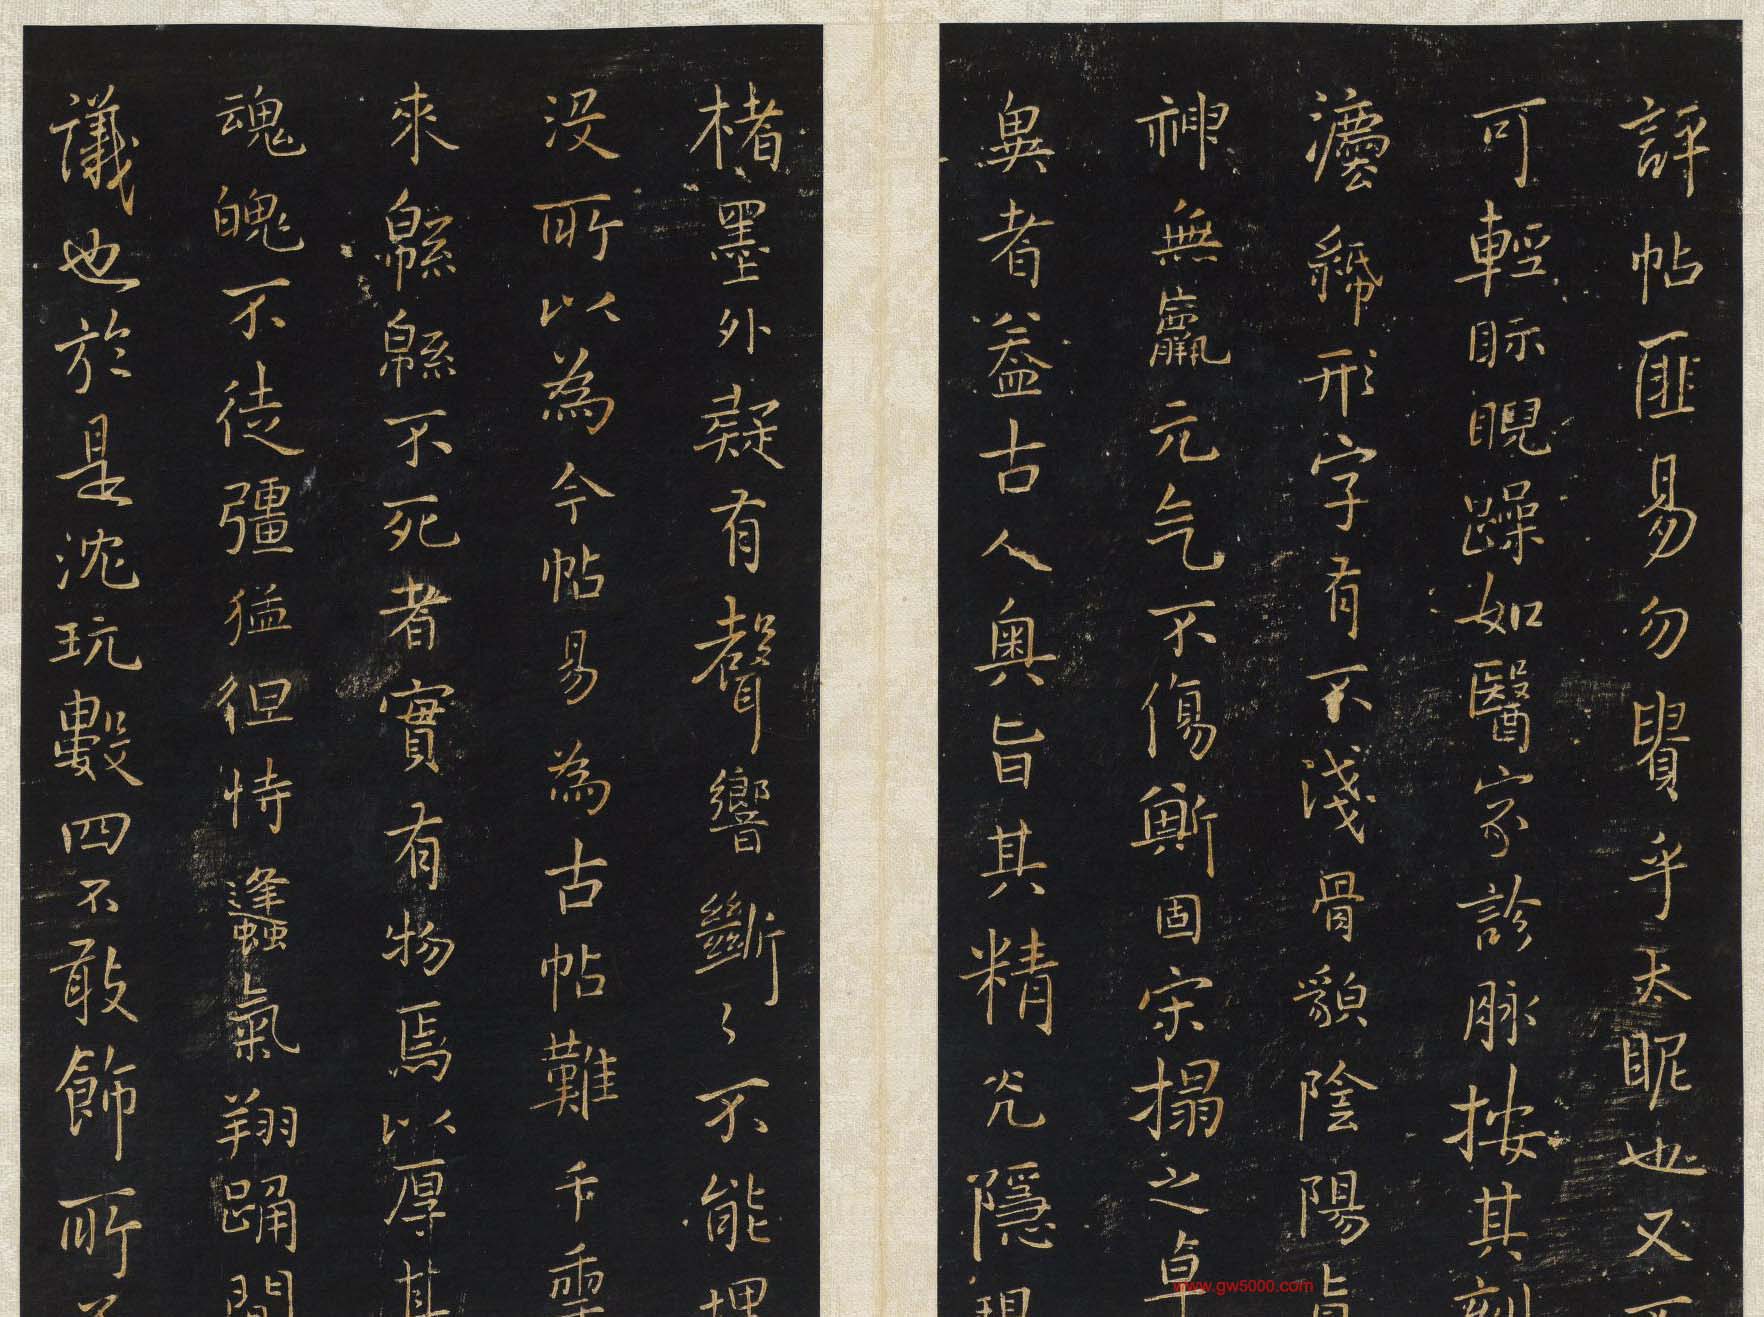 評帖匪易勿賢乎天眤也又不
可輕眎睨躁如醫家診脉按其刻
灋貌形字有不淺骨貌陰陽
神無羸元气不傷斷固宋搨之卓
異者葢古人奥旨其精光隱現
楮墨外疑有聲響斷〻不能埋
没所以為今帖易為古帖難千霊
來緜緜不死者實有物焉以厚其
魂魄不徒彊猛但恃蠭氣翔踊間
議也於是沈玩數四不敢飾所
www.gw5000.com